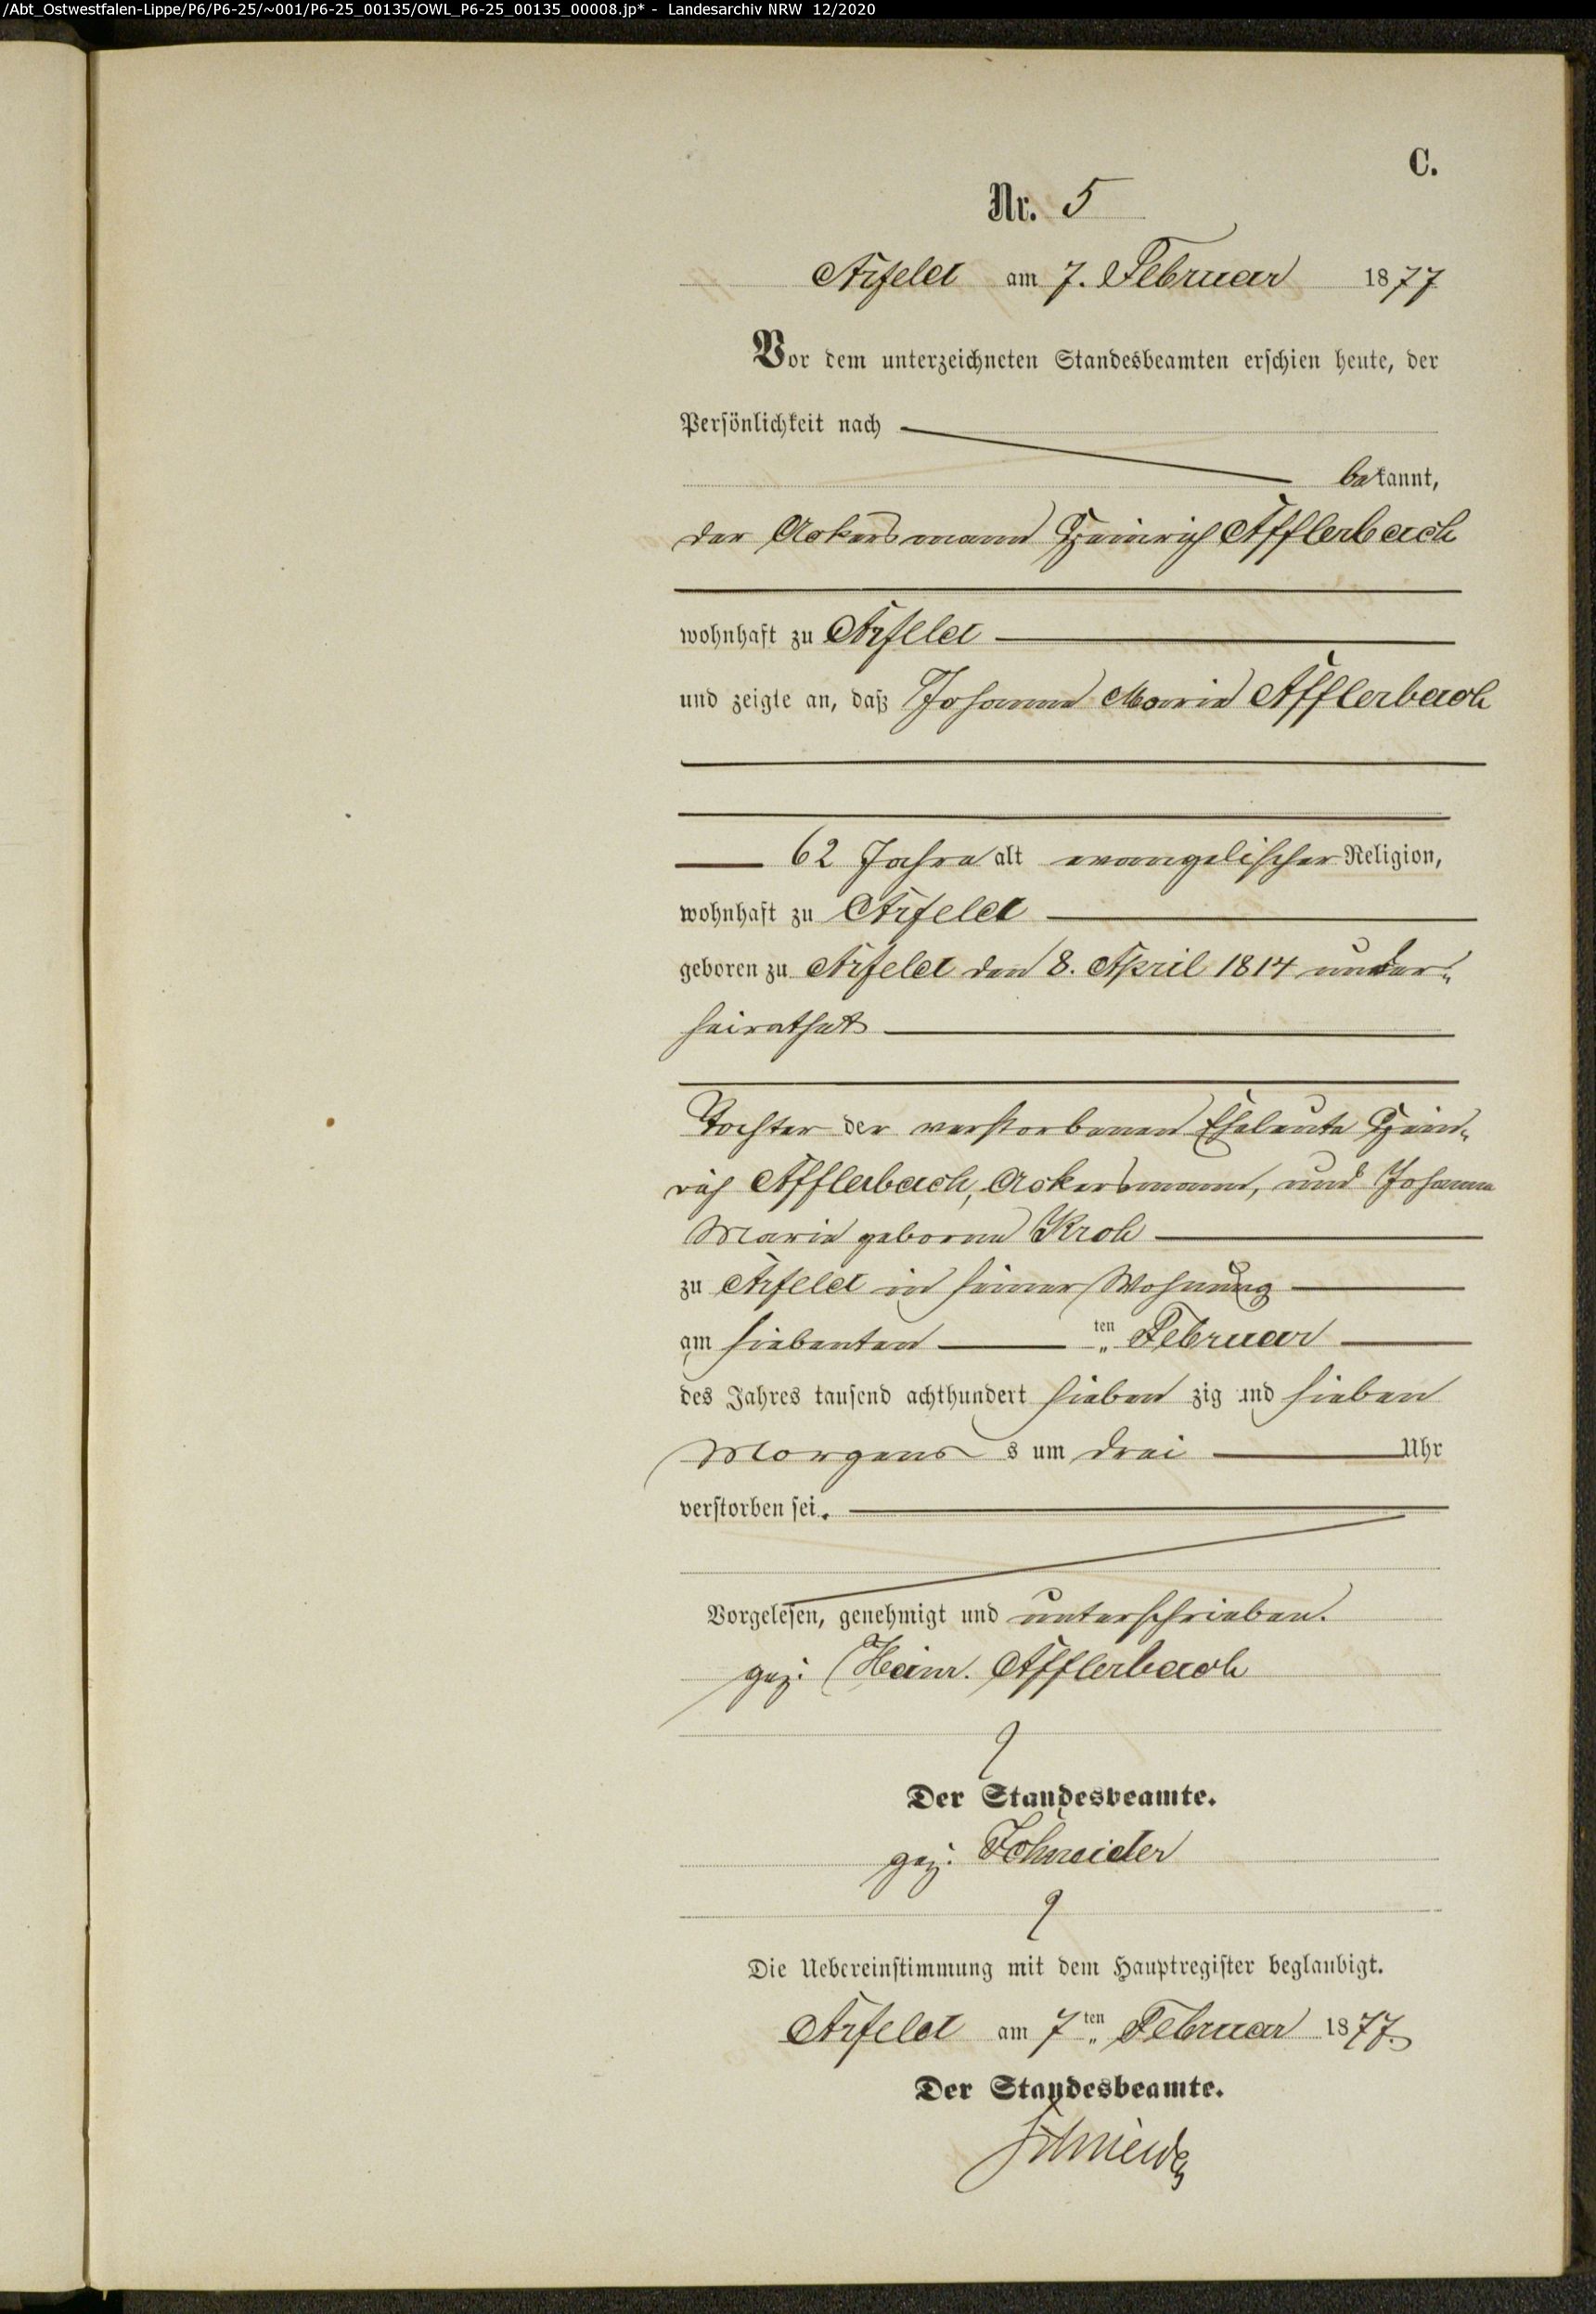 /Abt_Ostwestfalen-Lippe/P6/P6-25/~001/P6-25_00135/OWL_P6-25_00135_00008.jp* - Landesarchiv NRW 12/2020
C.
Nr. 5
Arfeld am 7. Februar 1877
Vor dem unterzeichneten Standesbeamten erschien heute, der
Persönlichkeit nach
bekannt,
der Ackersmann Heinrich Afflerbach
wohnhaft zu Arfeld
und zeigte an, daß Johanna Maria Afflerbach
62 Jahre alt evangelischer Religion,
wohnhaft zu Arfeld
geboren zu Arfeld den 8. April 1814 unver-
heirathet
Tochter der verstorbenen Eheleute Hein-
rich Afflerbach, Ackersmann, und Johanna
Maria geborne Kroh
zu Arfeld in seiner Wohnung
am siebenten ten Februar
des Jahres tausend achthundert sieben zig und sieben
Morgens s um drei Uhr
verstorben sei.
Vorgelesen, genehmigt und unterschrieben.
gez. Heinr. Afflerbach
Der Standesbeamte.
gez. Schneider
Die Uebereinstimmung mit dem Hauptregister beglaubigt.
Arfeld am 7ten Februar 1877.
Der Standesbeamte.
Schneider